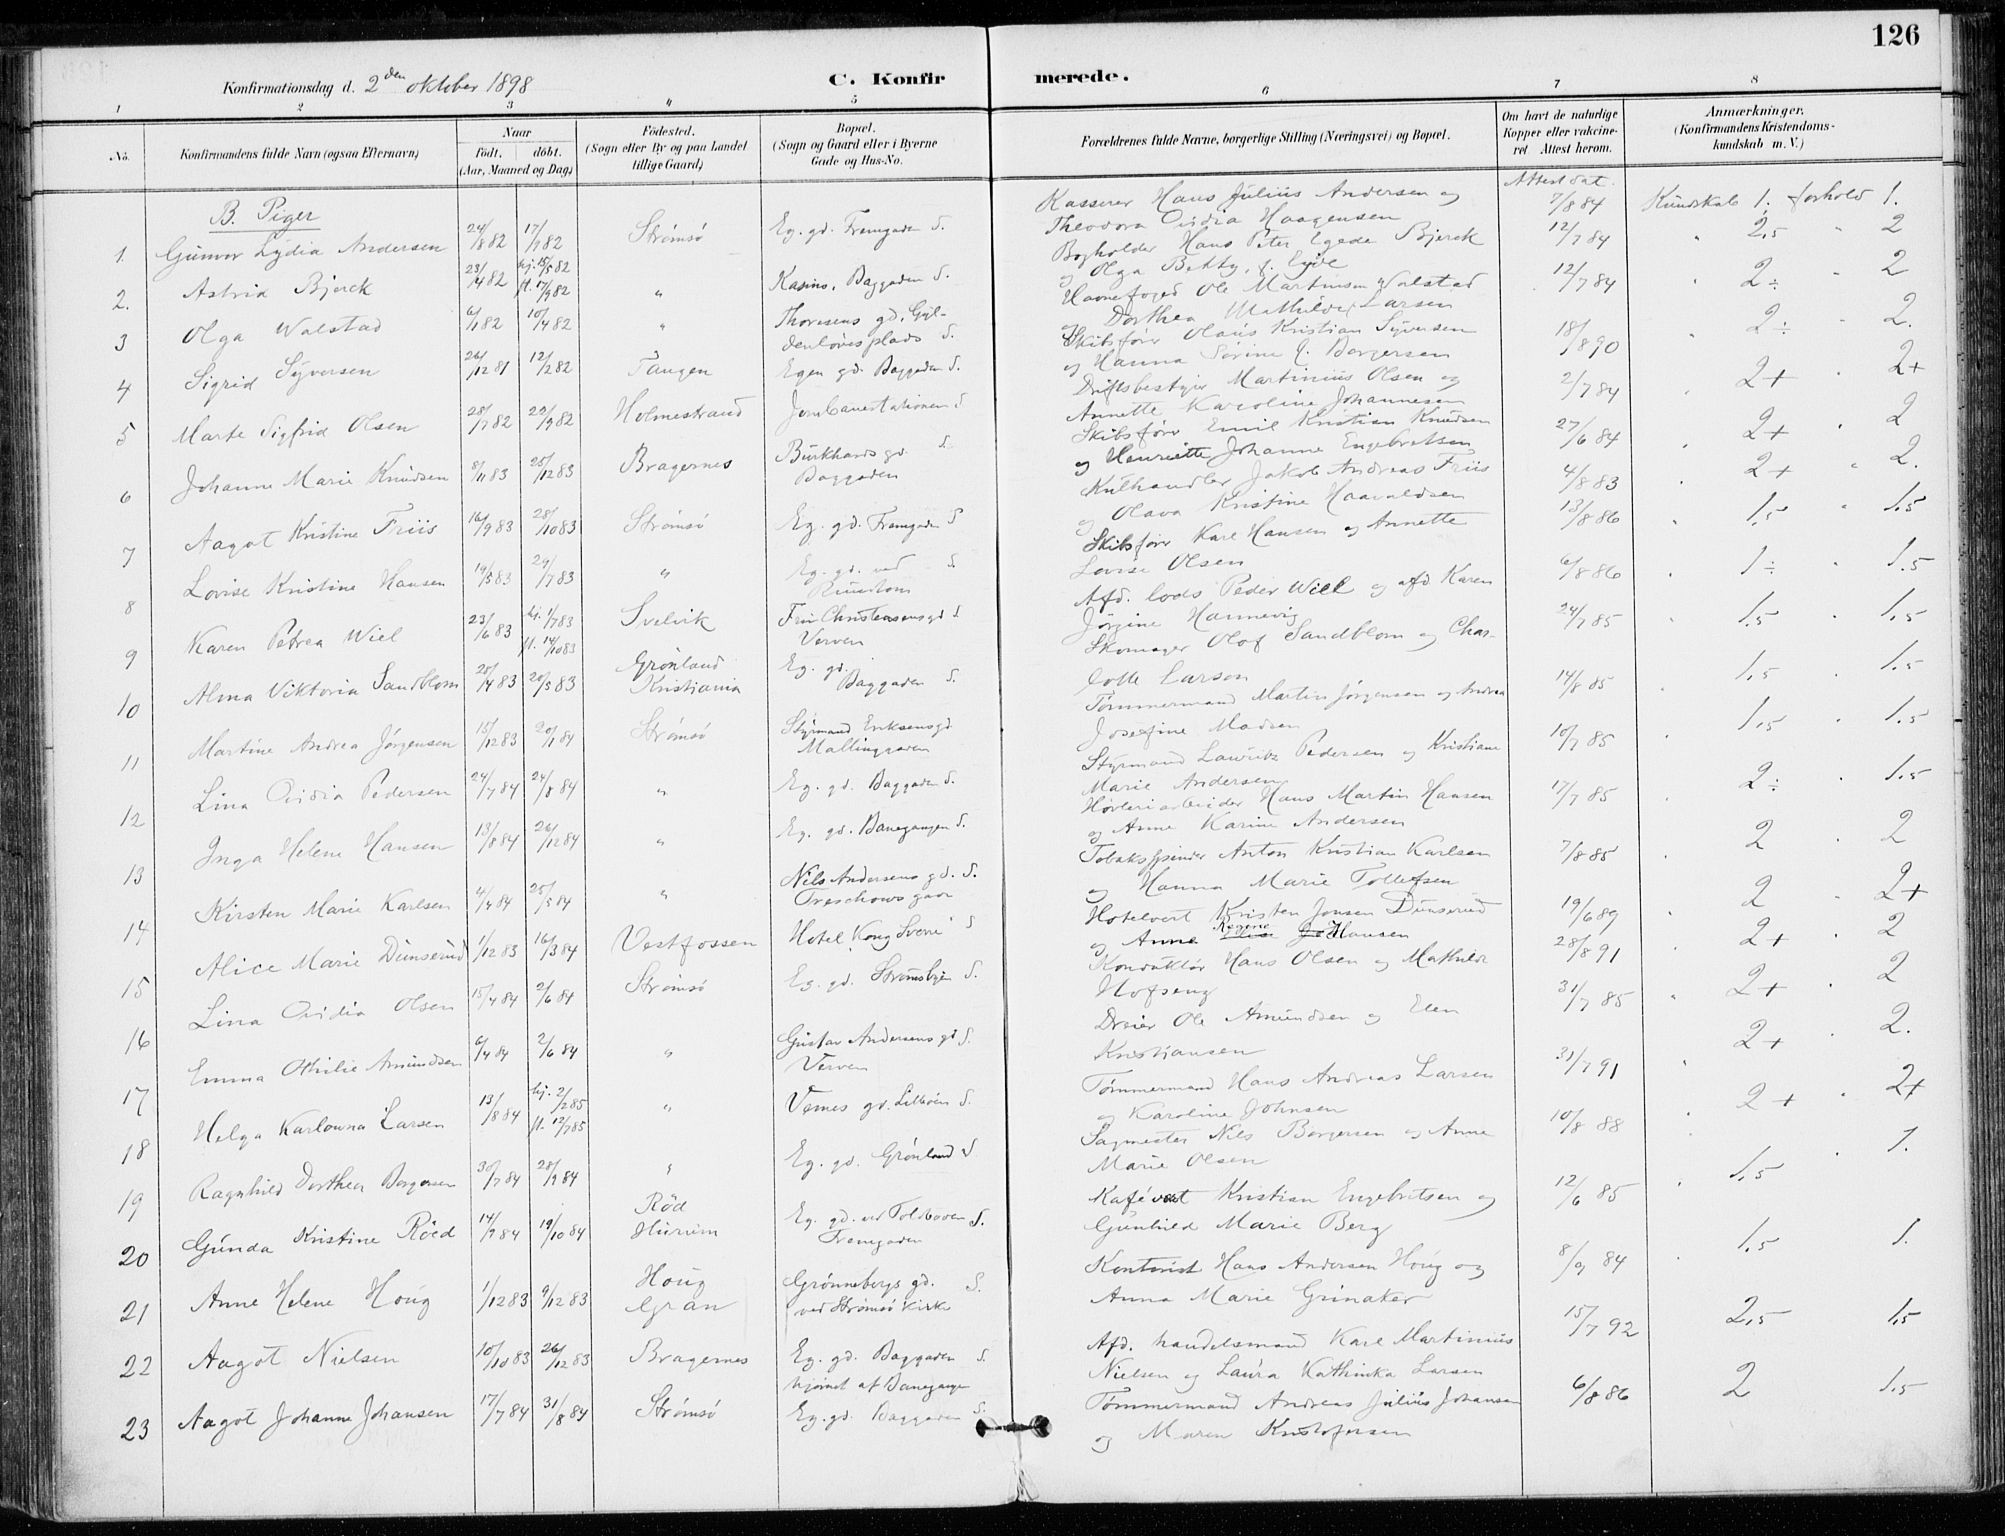 126
Konfirmationsdag d. 2den oktober 1898 C. Konfirmerede.
1 2 3 4 5 6 7 8
No. Konfirmandens fulde Navn (ogsaa Efternavn) Naar født. døbt. (Aar, Maaned og Dag) Fødested. (Sogn eller By og paa Landet tillige Gaard) Bopæl. (Sogn og Gaard eller i Byerne Gade og Hus-No. Forældrenes fulde Navne, borgerlige Stilling (Næringsvei) og Bopæl. Om havt de naturlige Kopper eller vakcineret Attest herom. Anmærkninger. (Konfirmandens Kristendomskundskab m. V.)
B. Piger
Attest dat.
1. Gunvor Lydia Andersen 24/8 82 17/7 82 Strømsø Eg. gd. Fremgaden S. Kasserer Hans Julius Andersen og 7/8 84 Kundskab 1. forhold 1.
Theodora Ovidia Haagensen
2. Astrid Bjerck 23/4 82 hj. 15/5 82 fl. 17/9 82 " Kasino, Baggaden S. Bogholder Hans Peter Egede Bjerck 12/7 84 " 2,5 " 2
og Olga Betty, f. Eyde
3 Olga Walstad 6/1 82 10/4 82 " Thoresens gd. Gyldenløvesplads S. Havnefoged Ole Martinsen Walstad 12/7 84 " 2÷ " 2
og Dorthea Mathilde Larsen
4 Sigrid Syversen 26/12 81 12/2 82 Tangen Egen gd. Baggaden S. Skibsfører Olaus Kristian Syversen 18/8 90 " 2÷ " 2.
og Hanna Sørine f. Borgersen
5 Marte Sigfrid Olsen 28/7 82 29/9 82 Holmestrand Jernbanestationen S Driftsbestyrer Martinius Olsen og 2/7 84 " 2+ " 2+
Annette Karoline Johannesen
6 Johanne Marie Knudsen 8/11 83 25/12 83 Bragernes Burkhards gd. Baggaden S. Skibsfører Emil Kristian Knudsen 27/6 84 " 2+ " 2
og Henriette Johanne Engebretsen
7 Aagot Kristine Friis 16/9 83 28/10 83 Strømsø Eg. gd. Fremgaden S Kulhandler Jakob Andreas Friis 4/8 83 " 2+ " 2.
og Olava Kristine Haavaldsen
8 Lovise Kristine Hansen 19/5 83 29/7 83 " Eg. gd. ved S Skibsfører Karl Hansen og Annette 13/8 86 " 1,5 " 1,5
Lovise Olsen
9 Karen Petrea Wiel 23/6 83 hj. 1/7 83 fl. 14/10 83 Svelvik Fru Christensens gd S. Verven Afd. lods Peder Wiel og afd. Karen 6/8 86 " 1÷ " 1.5
Jørgine Hannevig
10 Alma Viktoria Sandblom 25/4 83 20/5 83 Grønland Kristiania Eg. gd. Baggaden S. Skomager Olof Sandblom og Char- 24/7 85 " 1.5 " 1,5
lotte Larson
11 Martine Andrea Jørgensen 15/12 83 20/1 84 Strømsø Styrmand Eriksens gd Tømmermand Martin Jørgensen og Andrea 14/8 85 " 1,5 " 1.5
Josefine Madsen
12 Lina Ovidia Pedersen 24/7 84 24/8 84 " Eg. gd. Baggaden S. Styrmand Lauritz Pedersen og Kristiane 10/7 85 " 1,5 " 1.5
Marie Andersen
13 Inga Helene Hansen 13/8 84 26/12 84 " Eg. gd. Banegangen S. Høvleriarbeider Hans Martin Hansen 17/7 85 " 2÷ " 1.5
og Anne Karine Andersen
14 Kirsten Marie Karlsen 4/4 84 25/5 84 " Nils Andersens gd. S. Treschows gade Tobakspinder Anton Kristian Karlsen 7/8 85 " 2 " 2
og Hanna Marie Tollefsen
15 Alice Marie Dunserud 1/12 83 16/3 84 Vestfossen Hotel "Kong Sverre" S Hotelvert Kristen Jonsen Dunserud 19/6 89 2 2+
og Anne Regine Hansen
16 Lina Ovidia Olsen 15/4 84 2/6 84 Strømsø Eg. gd. Strømsbyen S. Konduktør Hans Olsen og Mathilde 28/8 91 " 2+ " 2
Hofseng
17 Emma Othilie Amundsen 6/4 84 2/6 84 " Gustav Andersens gd S. Verven Dreier Ole Amundsen og Elen 31/7 85 " 2+ " 2
Kristiansen
18 Helga Karlowna Larsen 13/8 84 hj. 2/2 85 fl. 12/7 85 " Vemes gd. Lilleøen S. Tømmermand Hans Andreas Larsen 31/7 91 " 2+ " 2.
og Karoline Johnsen
19 Ragnhild Dorthea Borgersen 30/7 84 28/9 84 " Eg. gd. Grønland S Sagmester Nils Borgersen og Anne 10/8 88 " 2+ " 2+
Marie Olsen
20 Gunda Kristine Röed 14/9 84 19/10 84 Röd Hurum Eg. gd. ved Toldboden S. Fremgaden Kafévært Kristian Engebretsen og 12/6 85 " 1,5 " 1.
Gunhild Marie Berg
21 Anne Helene Houg 1/12 83 9/12 83 Houg Gran Grønnebergs gd. S. ved Strømsø kirke Kontorist Hans Andersen Houg og 8/9 84 " 1.5 1.
Anna Marie Grinaker
22 Aagot Nielsen 10/10 83 26/12 83 Bragernes Eg. gd. Baggaden S. hjørnet af Banegangen Afd. handelsmand Karl Martinius 15/7 92 2,5 1,5
Nielsen og Laura Kathinka Larsen
23 Aagot Johanne Johansen 17/7 84 31/8 84 Strømsø Eg. gd. Baggaden S. Tømmermand Andreas Julius Johansen 6/8 86 2 1.5
og Maren Kristofersen